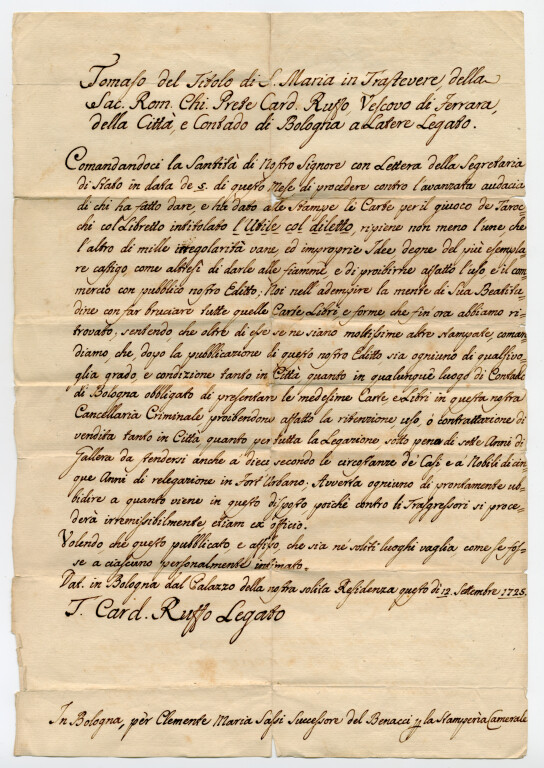 Tomaso del Titolo di S. Maria in Trastevere, della
Sac. Rom. Chi. Prete Card. Ruffo, Vescovo di Ferrara,
della Città, e Contado di Bologna a Latere Legato.
Comandandoci la Santità di Nostro Signore con Lettera della Segretaria
di Stato in data de 5. di questo Mese di procedere contro l'avanzata audacia
di chi ha fatto dare, e ha dato alle Stampe le Carte per il giuoco de Taroc-
chi col Libretto intitolato l'Utile col diletto, ripiene non meno l'une che
l'altro di mille irregolarità vane, ed improprie Idee degne del più esempla-
re castigo come altresì di darle alle fiamme, e di proibirne affatto l'uso e il com-
mercio con pubblico nostro Editto; Noi nell'adempire la mente di Sua Beatitu-
dine con far bruciare tutte quelle Carte Libri e forme che fin ora abbiamo ri-
trovato; sentendo che oltre di esse se ne siano moltissime altre stampate, coman-
diamo che, dopo la pubblicazione di questo nostro Editto sia ogniuno di qualsivo-
glia grado, e condizione tanto in Città quanto in qualunque luogo di Contado
di Bologna obbligato di presentare le medesime Carte e Libri in questa nostra
Cancellaria Criminale proibendone affatto la ritenzione uso, ò contrattazione di
vendita tanto in Città quanto per tutta la Legazione sotto pena di sette Anni di
Gallera da stendersi anche a dieci secondo le circostanze de' Casi e a' Nobili di cin-
que Anni di relegazione in Fort'Urbano; Averta ogniuno di prontamente ub-
bidire a quanto viene in questo disposto, poichè contro li Trasgressori si proce-
derà irremisibilmente, etiam ex officio.
Volendo che questo pubblicato, e affisso, che sia ne' soliti luoghi vaglia come se fos-
se a ciascuno personalmente intimato.
Dat. in Bologna dal Palazzo della nostra solita Residenza questo dì 12. Settembre 1725.
T. Card. Ruffo Legato
In Bologna, pèr Clemente Maria Sassi Successore del Benacci la Stamperia Camerale